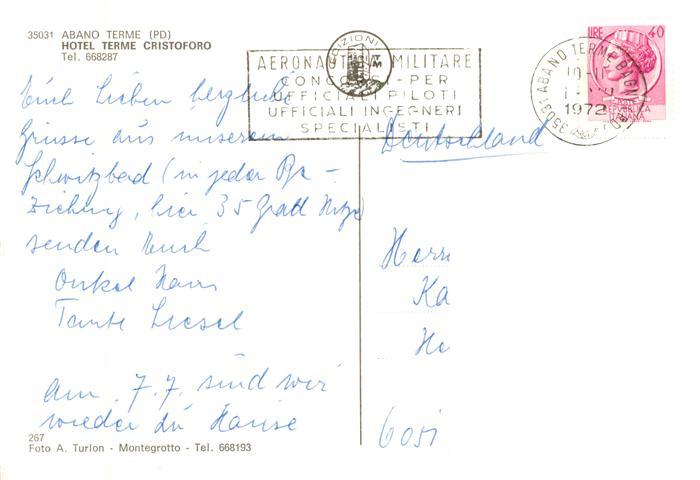 35031 ABANO TERME (PD)
HOTEL TERME CRISTOFORO
Tel. 668287
Euch Lieben herzliche
Grüsse aus unserem
Schwitzbad (in jeder Be-
ziehung, hier 35 Grad Hitze)
senden Euch
Onkel Hans
Tante Liesel
Am 7.7. sind wir
wieder zu Hause
267
Foto A. Turlon - Montegrotto - Tel. 668193
EDIZIONI
AERONAUTICA MILITARE
CONCORSI - PER
UFFICIALI PILOTI
UFFICIALI INGEGNERI
SPECIALISTI
LIRE 40
REPUBBLICA
ITALIANA
35031 ABANO TERME BAGNI
1972
Deutschland
Herrn
Ka
He
6051